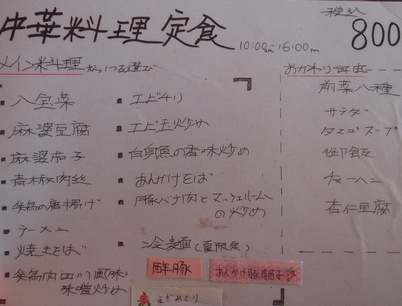 中華料理 定食
10:00am~16:00pm
税込
800
メイン料理から1つお選び
八宝菜
麻婆豆腐
麻婆茄子
青椒肉絲
若鶏の唐揚げ
ラーメン
焼きそば
味噌炒め
エビチリ
エビ玉炒め
白身魚の香味炒め
あんかけそば
豚バラ肉とマッシュルーム
の炒め
冷麺(夏限定)
酢豚
おかわり自由
前菜八種
サラダ
タマゴスープ
チャーハン
杏仁豆腐